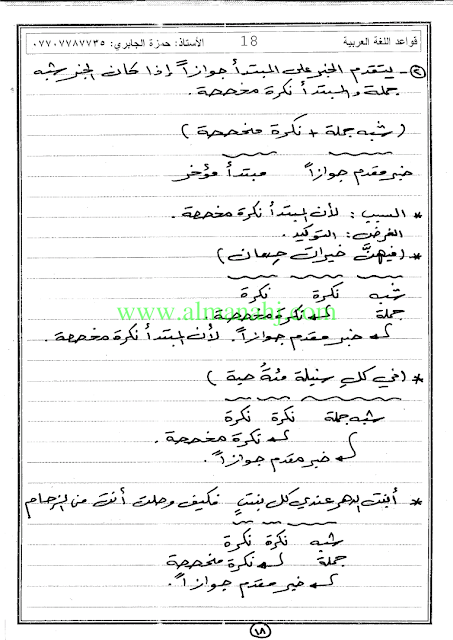 قواعد اللغة العربية 18 الأستاذ: حمزة الجابري: ٠٧٧٠٧٧٨٧٧٣٥
٢- يتقدم الخبر على المبتدأ جوازاً إذا كان الخبر شبه
جملة والمبتدأ نكرة مخصصة.
(شبه جملة + نكرة مخصصة)
خبر مقدم جوازاً مبتدأ مؤخر
* السبب: لأن المبتدأ نكرة مخصصة.
الغرض: التوكيد.
* (فيهنَّ خيرات حسان)
شبه نكرة نكرة
جملة نكرة مخصصة
www.almanahj.com
خبر مقدم جوازاً. لأن المبتدأ نكرة مخصصة.
* (في كل سنبلة مئةُ حبة)
شبه جملة نكرة نكرة
نكرة مخصصة.
خبر مقدم جوازاً.
* أبنت الدهر عندي كل بنتٍ فكيف وصلت أنت من الزحام
شبه نكرة نكرة
جملة نكرة مخصصة
خبر مقدم جوازاً.
١٨